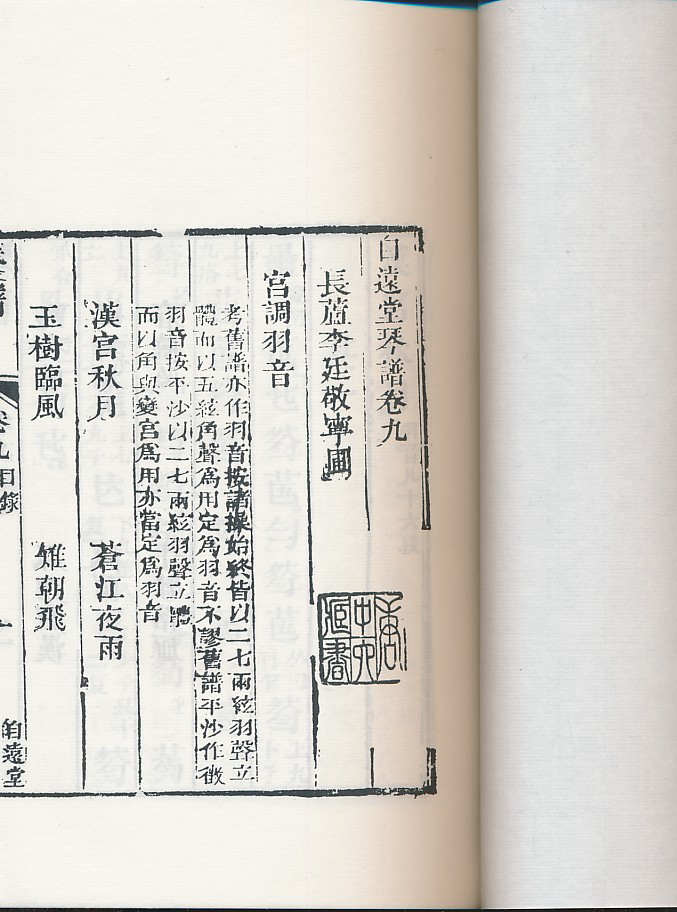 自遠堂琴譜卷九
長蘆李廷敬寧圃
宮調羽音
考舊譜亦作羽音按諸操始終皆以二七兩絃羽聲立
體而以五絃角聲爲用定爲羽音不謬舊譜平沙作徵
羽音按平沙以二七兩絃羽聲立體
而以角與變宮爲用亦當定爲羽音
漢宮秋月
蒼江夜雨
玉樹臨風
雉朝飛
卷九目錄
自遠堂